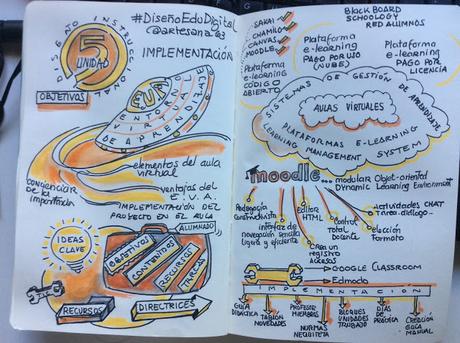 DISEÑO INSTRUCCIONAL
5
UNIDAD
#DiseñoEduDigital
@artesana
IMPLEMENTACIÓN
OBJETIVOS
E.V.A.
ENTORNO
VIRTUAL
DE APRENDIZAJE
elementos del aula
virtual
CONCIENCIAR
DE la
importancia
ventajas del
E.V.A.
IMPLEMENTACIÓN DEL
PROYECTO EN EL AULA
IDEAS
CLAVE
ALUMNADO
OBJETIVOS
CONTENIDOS
RECURSOS
TAREAS
RECURSOS
DIRECTRICES
SAKAI
CHAMILO
CANVAS
MOODLE
Plataforma
e-learning
CÓDIGO
ABIERTO
Plataforma
e-learning
PAGO POR USO
(NUBE)
BLACKBOARD
SCHOOLOGY
RED ALUMNOS
Plataforma
e-learning
PAGO POR
LICENCIA
SISTEMAS DE GESTIÓN DE APRENDIZAJE
AULAS VIRTUALES
PLATAFORMAS E-LEARNING
LEARNING MANAGEMENT SYSTEM
moodle... modular Objet-oriental
Dynamic Learning Environment
Pedagogía
Constructivista
interfaz de
navegación sencilla
ligera y eficiente
Editor
HTML
Crea un
registro
accesos
Control
total
Docente
Selección
Formato
Actividades CHAT
Tarea-diálogo...
GOOGLE CLASSROOM
Edmodo
IMPLEMENTACIÓN
GUÍA
DIDÁCTICA
TABLÓN
NOVEDADES
PROFESOR
MIEMBROS
NORMAS
NETIQUETA
BLOQUES
UNIDADES
TRABAJO
DÍAS
DE
PRÁCTICA
CREACIÓN
GUÍA
MANUAL